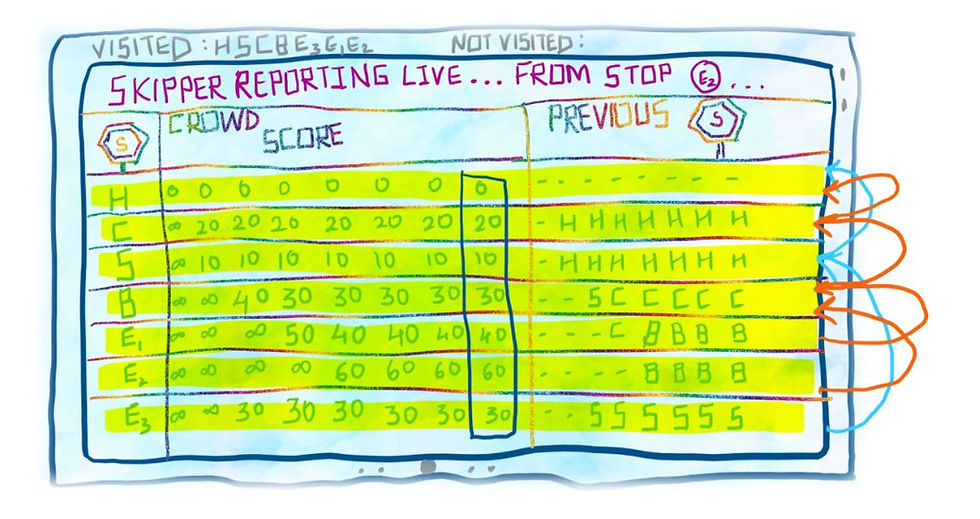 VISITED : H S C B E3 E1 E2 NOT VISITED :
SKIPPER REPORTING LIVE... FROM STOP E2 ...
S CROWD SCORE PREVIOUS S
H 0 0 0 0 0 0 0 0 - - - - - - - -
C ∞ 20 20 20 20 20 20 20 - H H H H H H H
S ∞ 10 10 10 10 10 10 10 - H H H H H H H
B ∞ ∞ 40 30 30 30 30 30 - - S C C C C C
E1 ∞ ∞ ∞ 50 40 40 40 40 - - - C B B B B
E2 ∞ ∞ ∞ ∞ 60 60 60 60 - - - - B B B B
E3 ∞ ∞ 30 30 30 30 30 30 - - S S S S S S